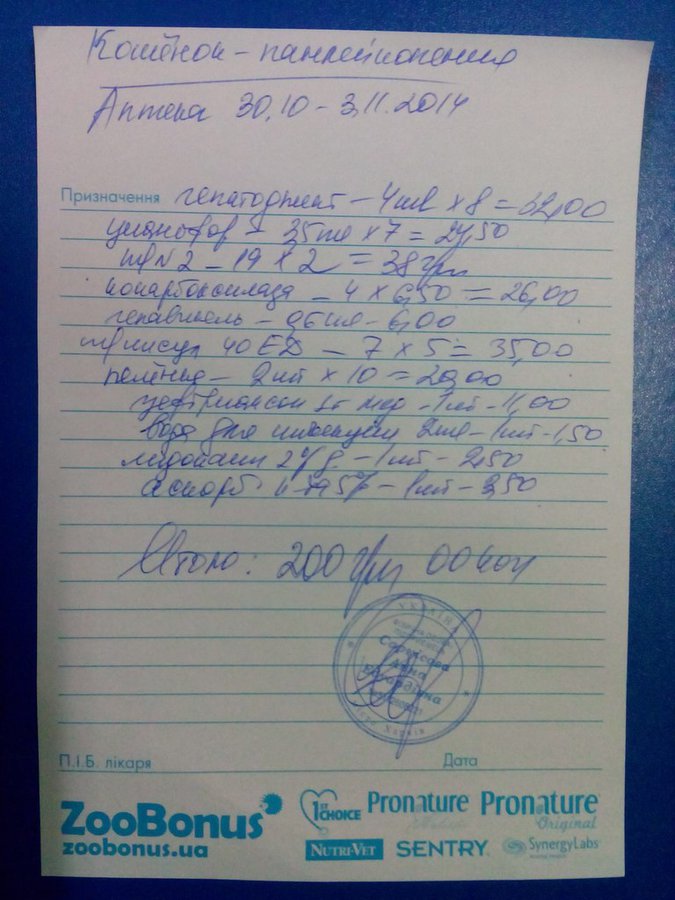 Котёнок - панлейкопения
Аптека 30.10 - 3.11.2014
Призначення гепатоджект - 4мл × 8 = 32,00
35мл × 7 = 24,50
№2 - 19 × 2 = 38 грн
кокарбоксилаза - 4 × 6,50 = 26,00
6,00
40 ЕД - 7 × 5 = 35,00
пелёнка - 2шт × 10 = 20,00
1шт - 11,00
вода для инъекций 2мл - 1шт - 1,50
лидокаин 2% - 1шт - 2,50
аскорб. к-та 5% - 1шт - 3,50
Итого: 200 грн 00 коп
УКРАЇНА
Харків
П.І.Б. лікаря Дата
ZooBonus
zoobonus.ua
1ST CHOICE
Pronature
Pronature Original
NUTRI-VET
SENTRY
SynergyLabs